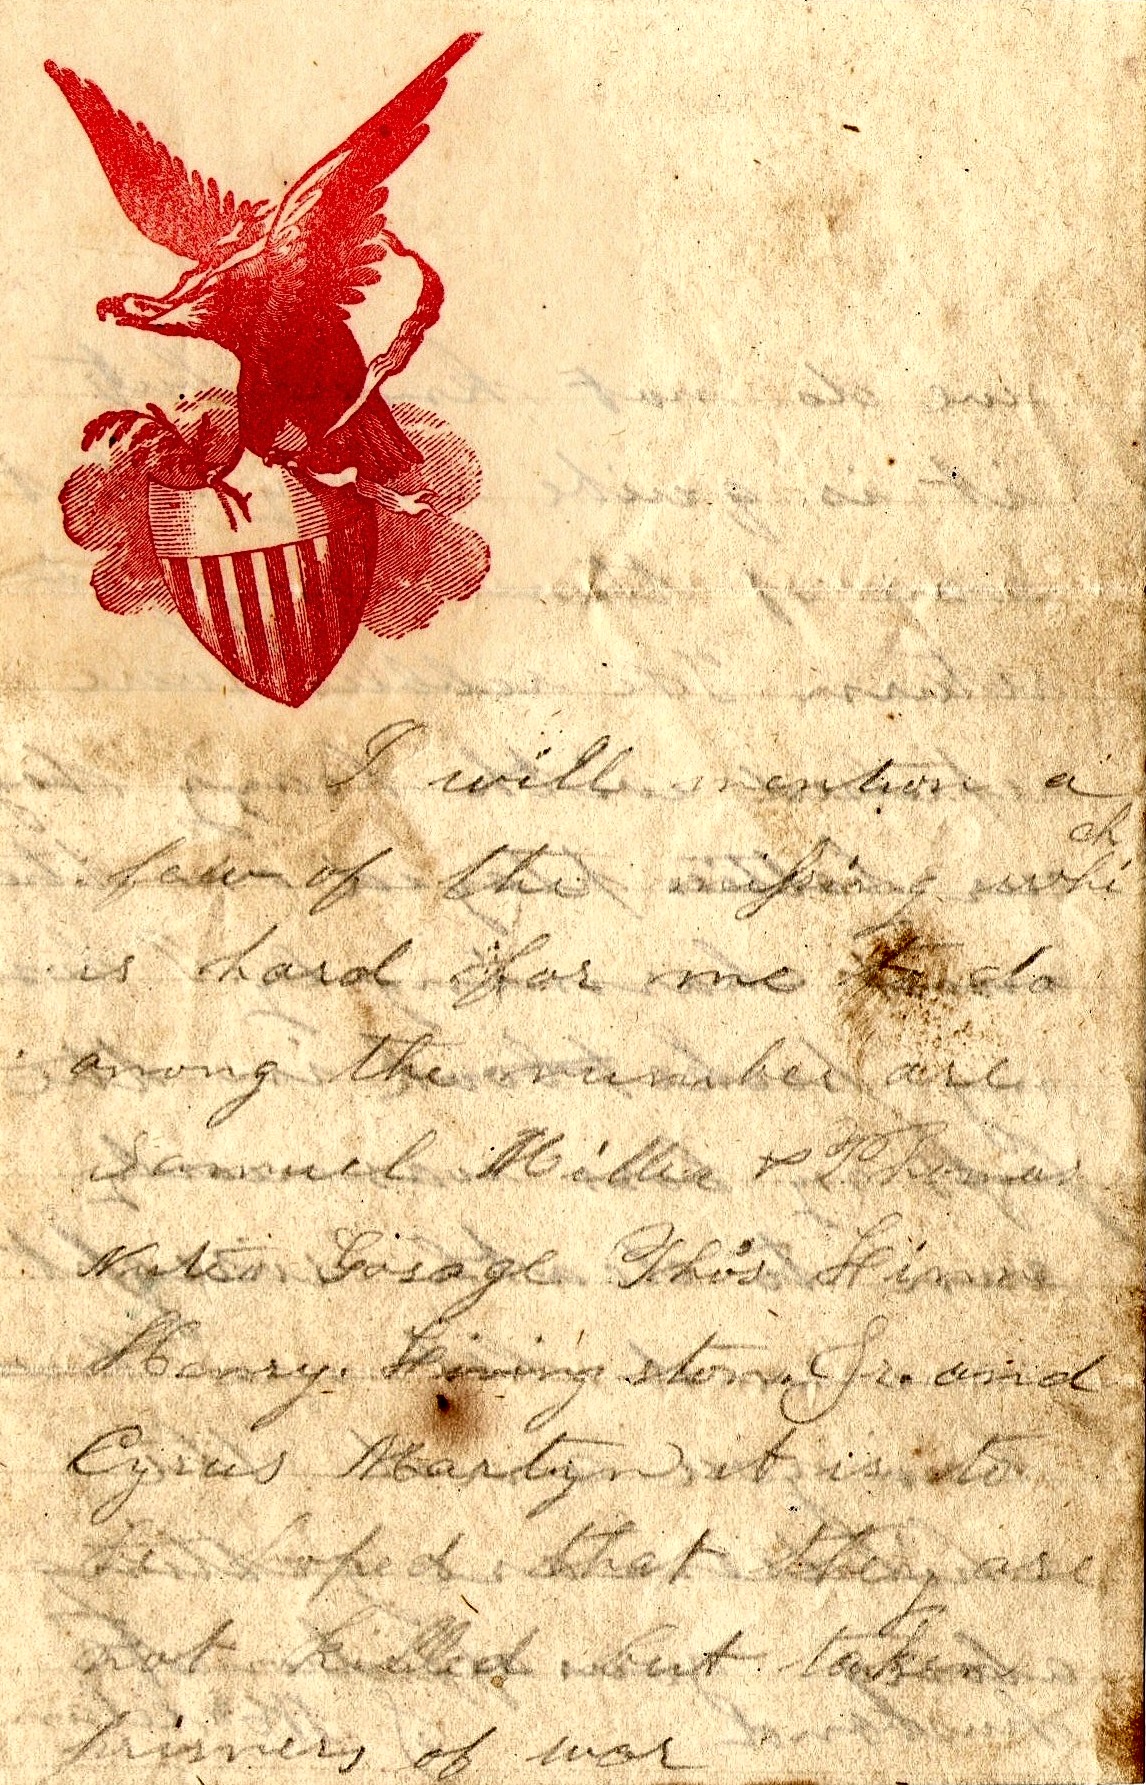 I will mention a
few of the missing which
is hard for me to do
among the number are
Samuel Miller & Thomas
Gosage Thos
Henry. Livingston Jr. and
Cyrus Martyn it is to
be hoped that they are
not killed but taken
prisners of war